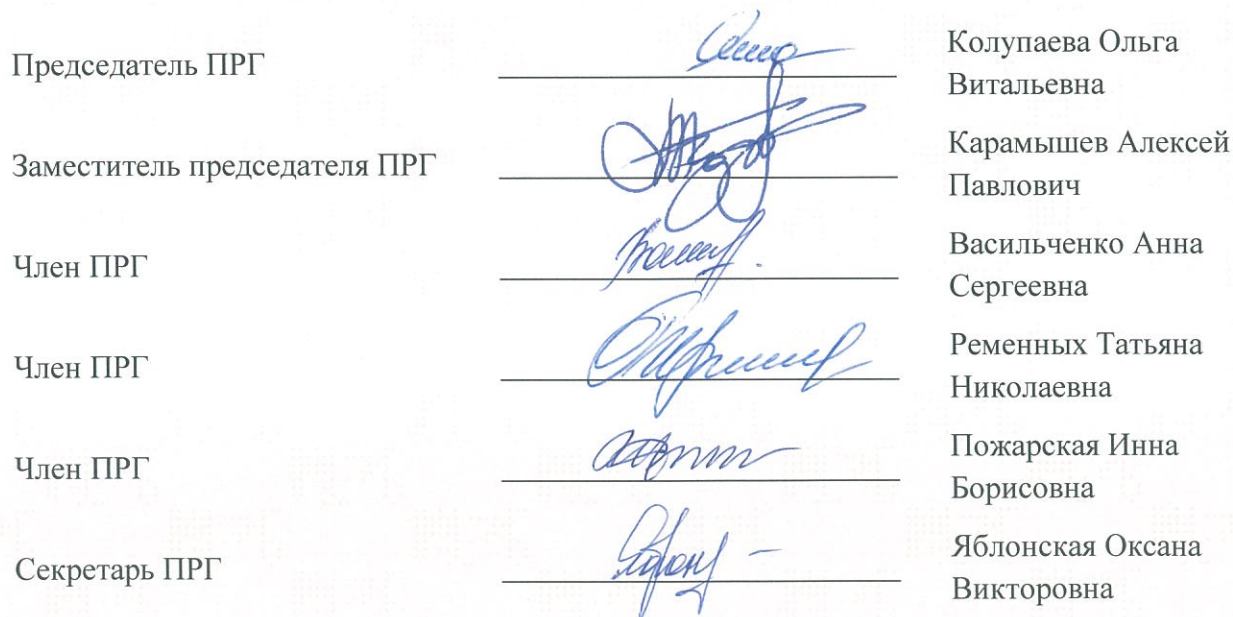 Председатель ПРГ
Колупаева Ольга
Витальевна
Заместитель председателя ПРГ
Карамышев Алексей
Павлович
Член ПРГ
Васильченко Анна
Сергеевна
Член ПРГ
Ременных Татьяна
Николаевна
Член ПРГ
Пожарская Инна
Борисовна
Секретарь ПРГ
Яблонская Оксана
Викторовна